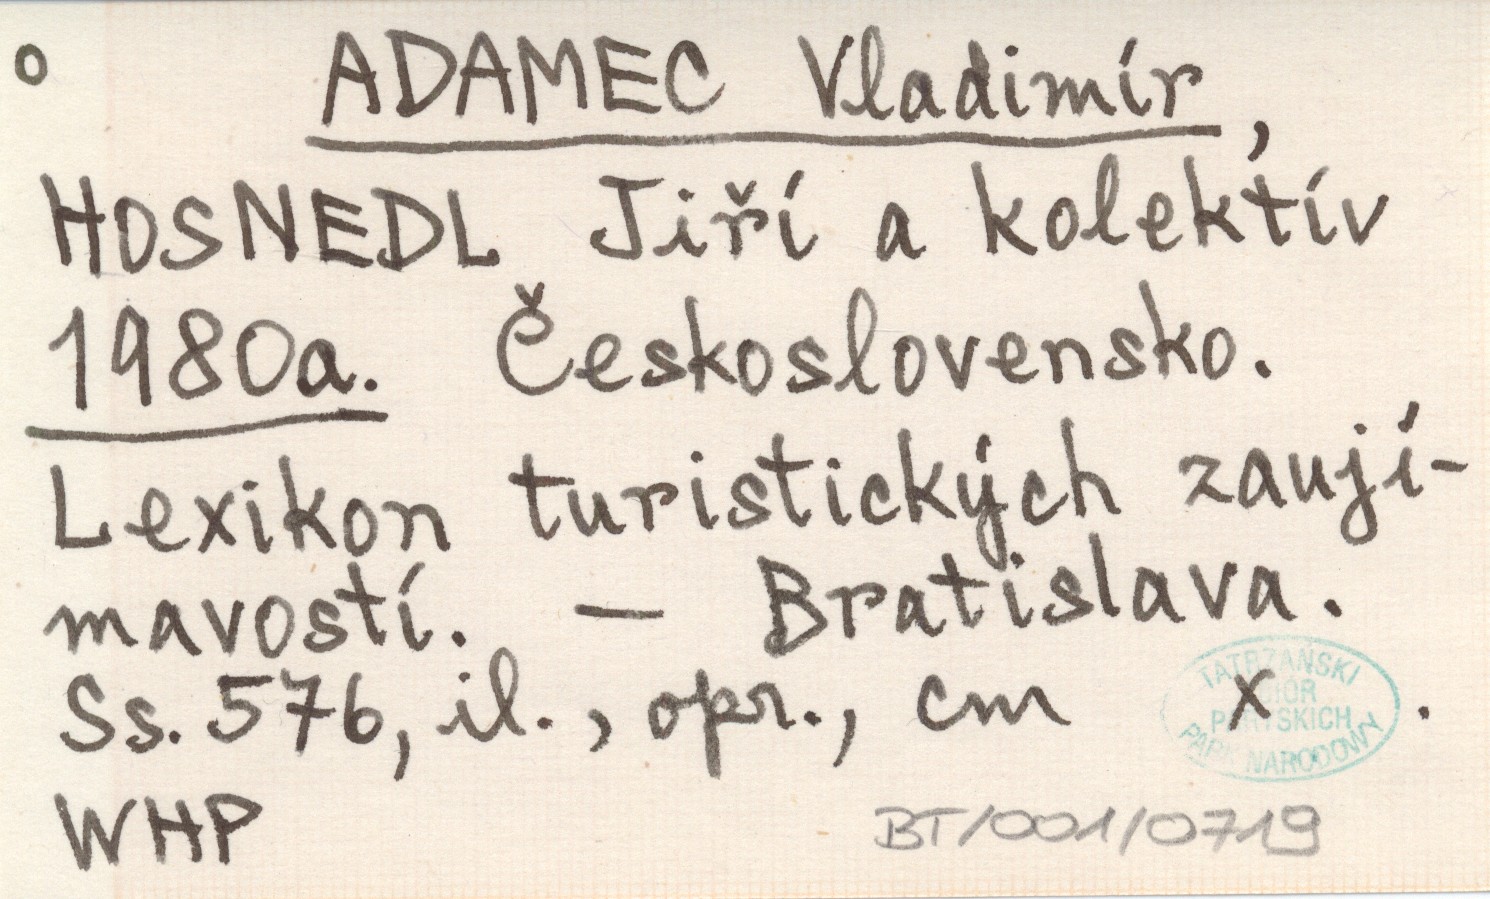 o ADAMEC Vladimír,
HOSNEDL Jiří a kolektív
1980a. Československo.
Lexikon turistických zaují-
mavostí. — Bratislava.
Ss. 576, il., opr., cm x .
TATRZAŃSKI
PARYSKICH
PARK NARODOWY
WHP
BT/001/0719